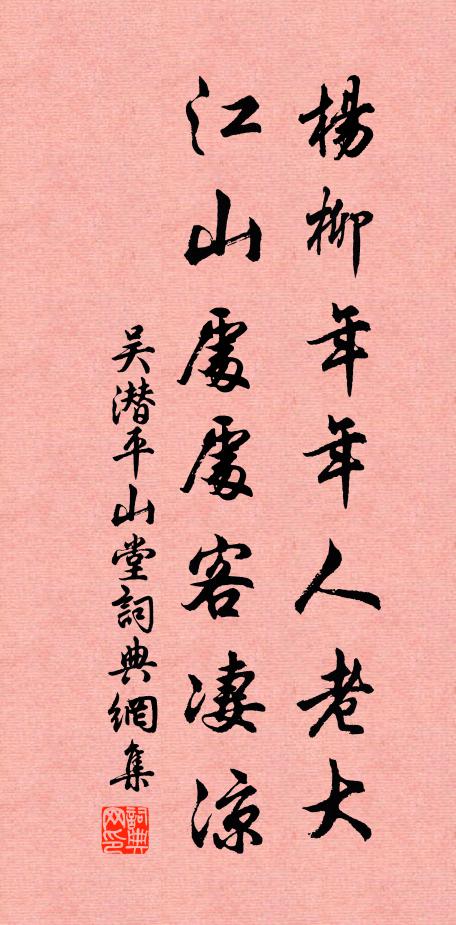 楊柳年年人老大
江山處處客凄涼
吴潜平山堂詞典網集
詞典
网印